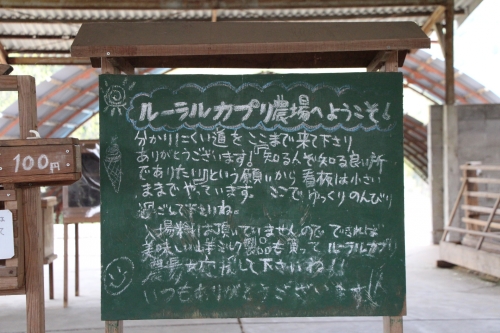 ルーラルカプリ農場へようこそ!
分かりにくい道を ここまで来て下さり
ありがとうございます!『知る人ぞ知る良い所
でありたい』という願いから 看板は小さい
ままでやっています。 ここで ゆっくりのんびり
過ごして下さいね。
入場料は頂いていませんので できれば
美味しい山羊ミルク製品を買って ルーラルカプリ
農場を応援して下さいね!!
いつもありがとうございます!!
100円